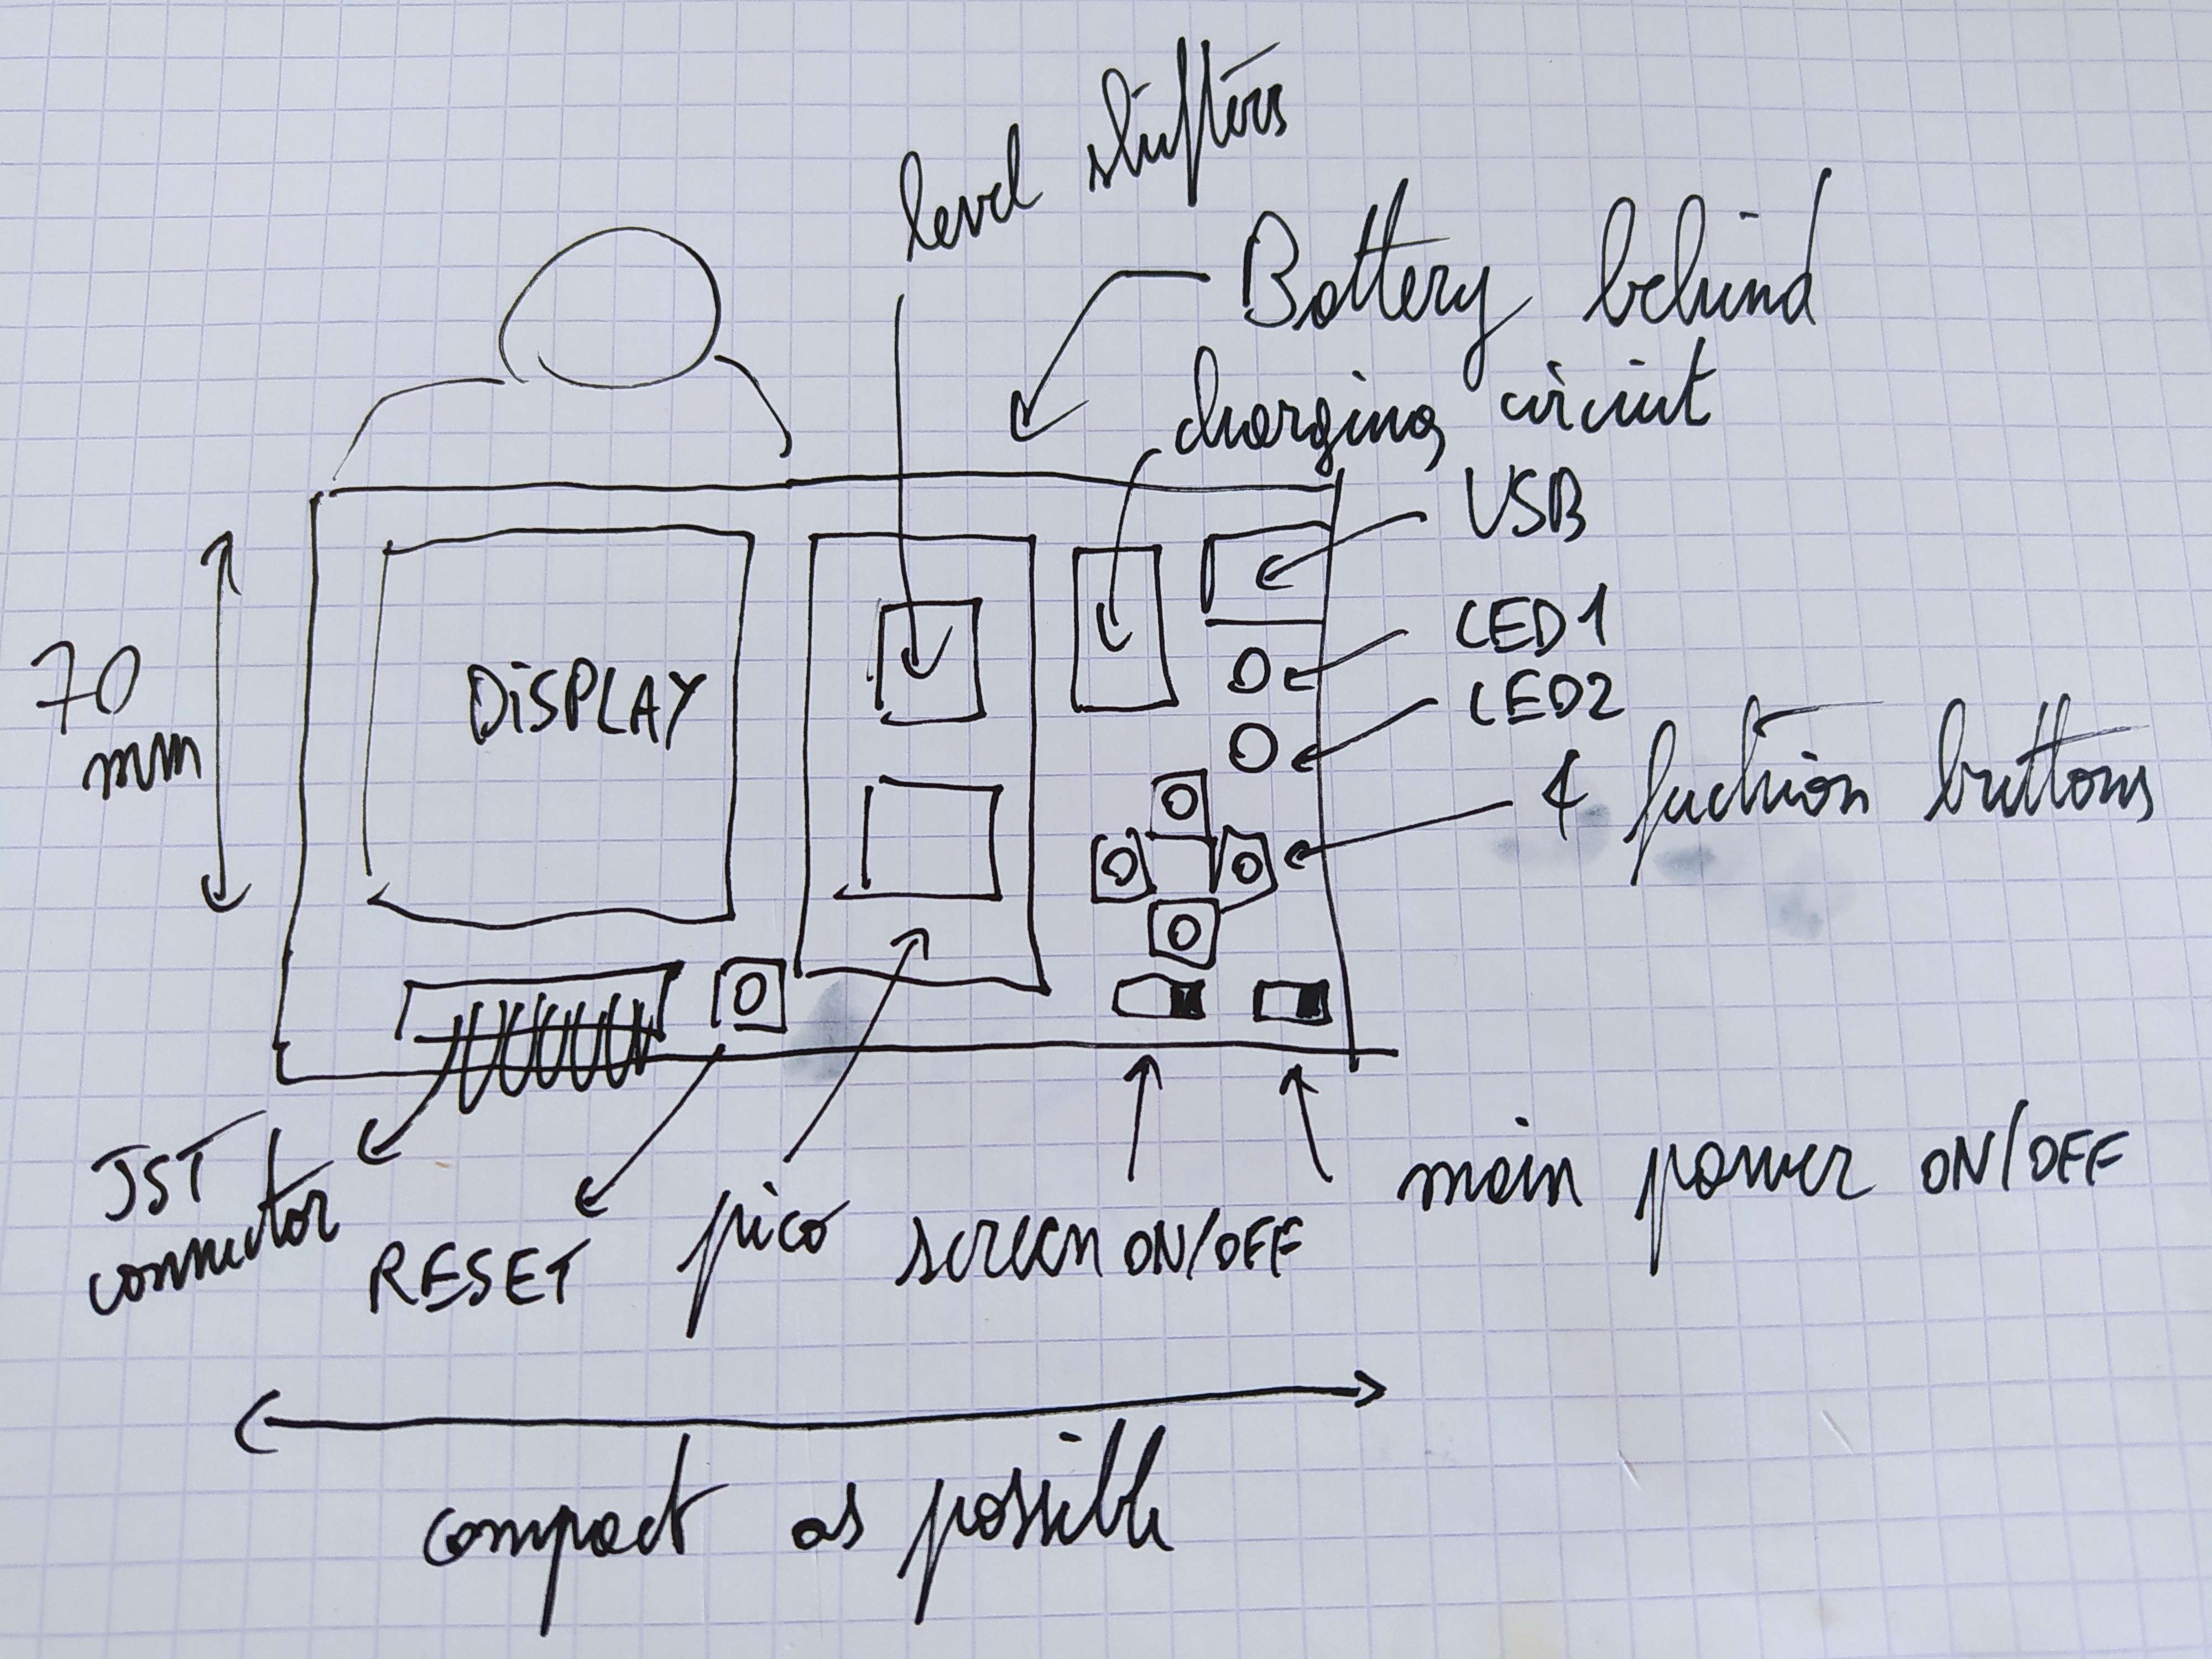 level shifters
Battery behind
charging circuit
USB
LED1
LED2
4 fuction buttons
DiSPLAY
70
mm
JST
connector
RESET
pico
screen ON/OFF
main power ON/OFF
compact as possible